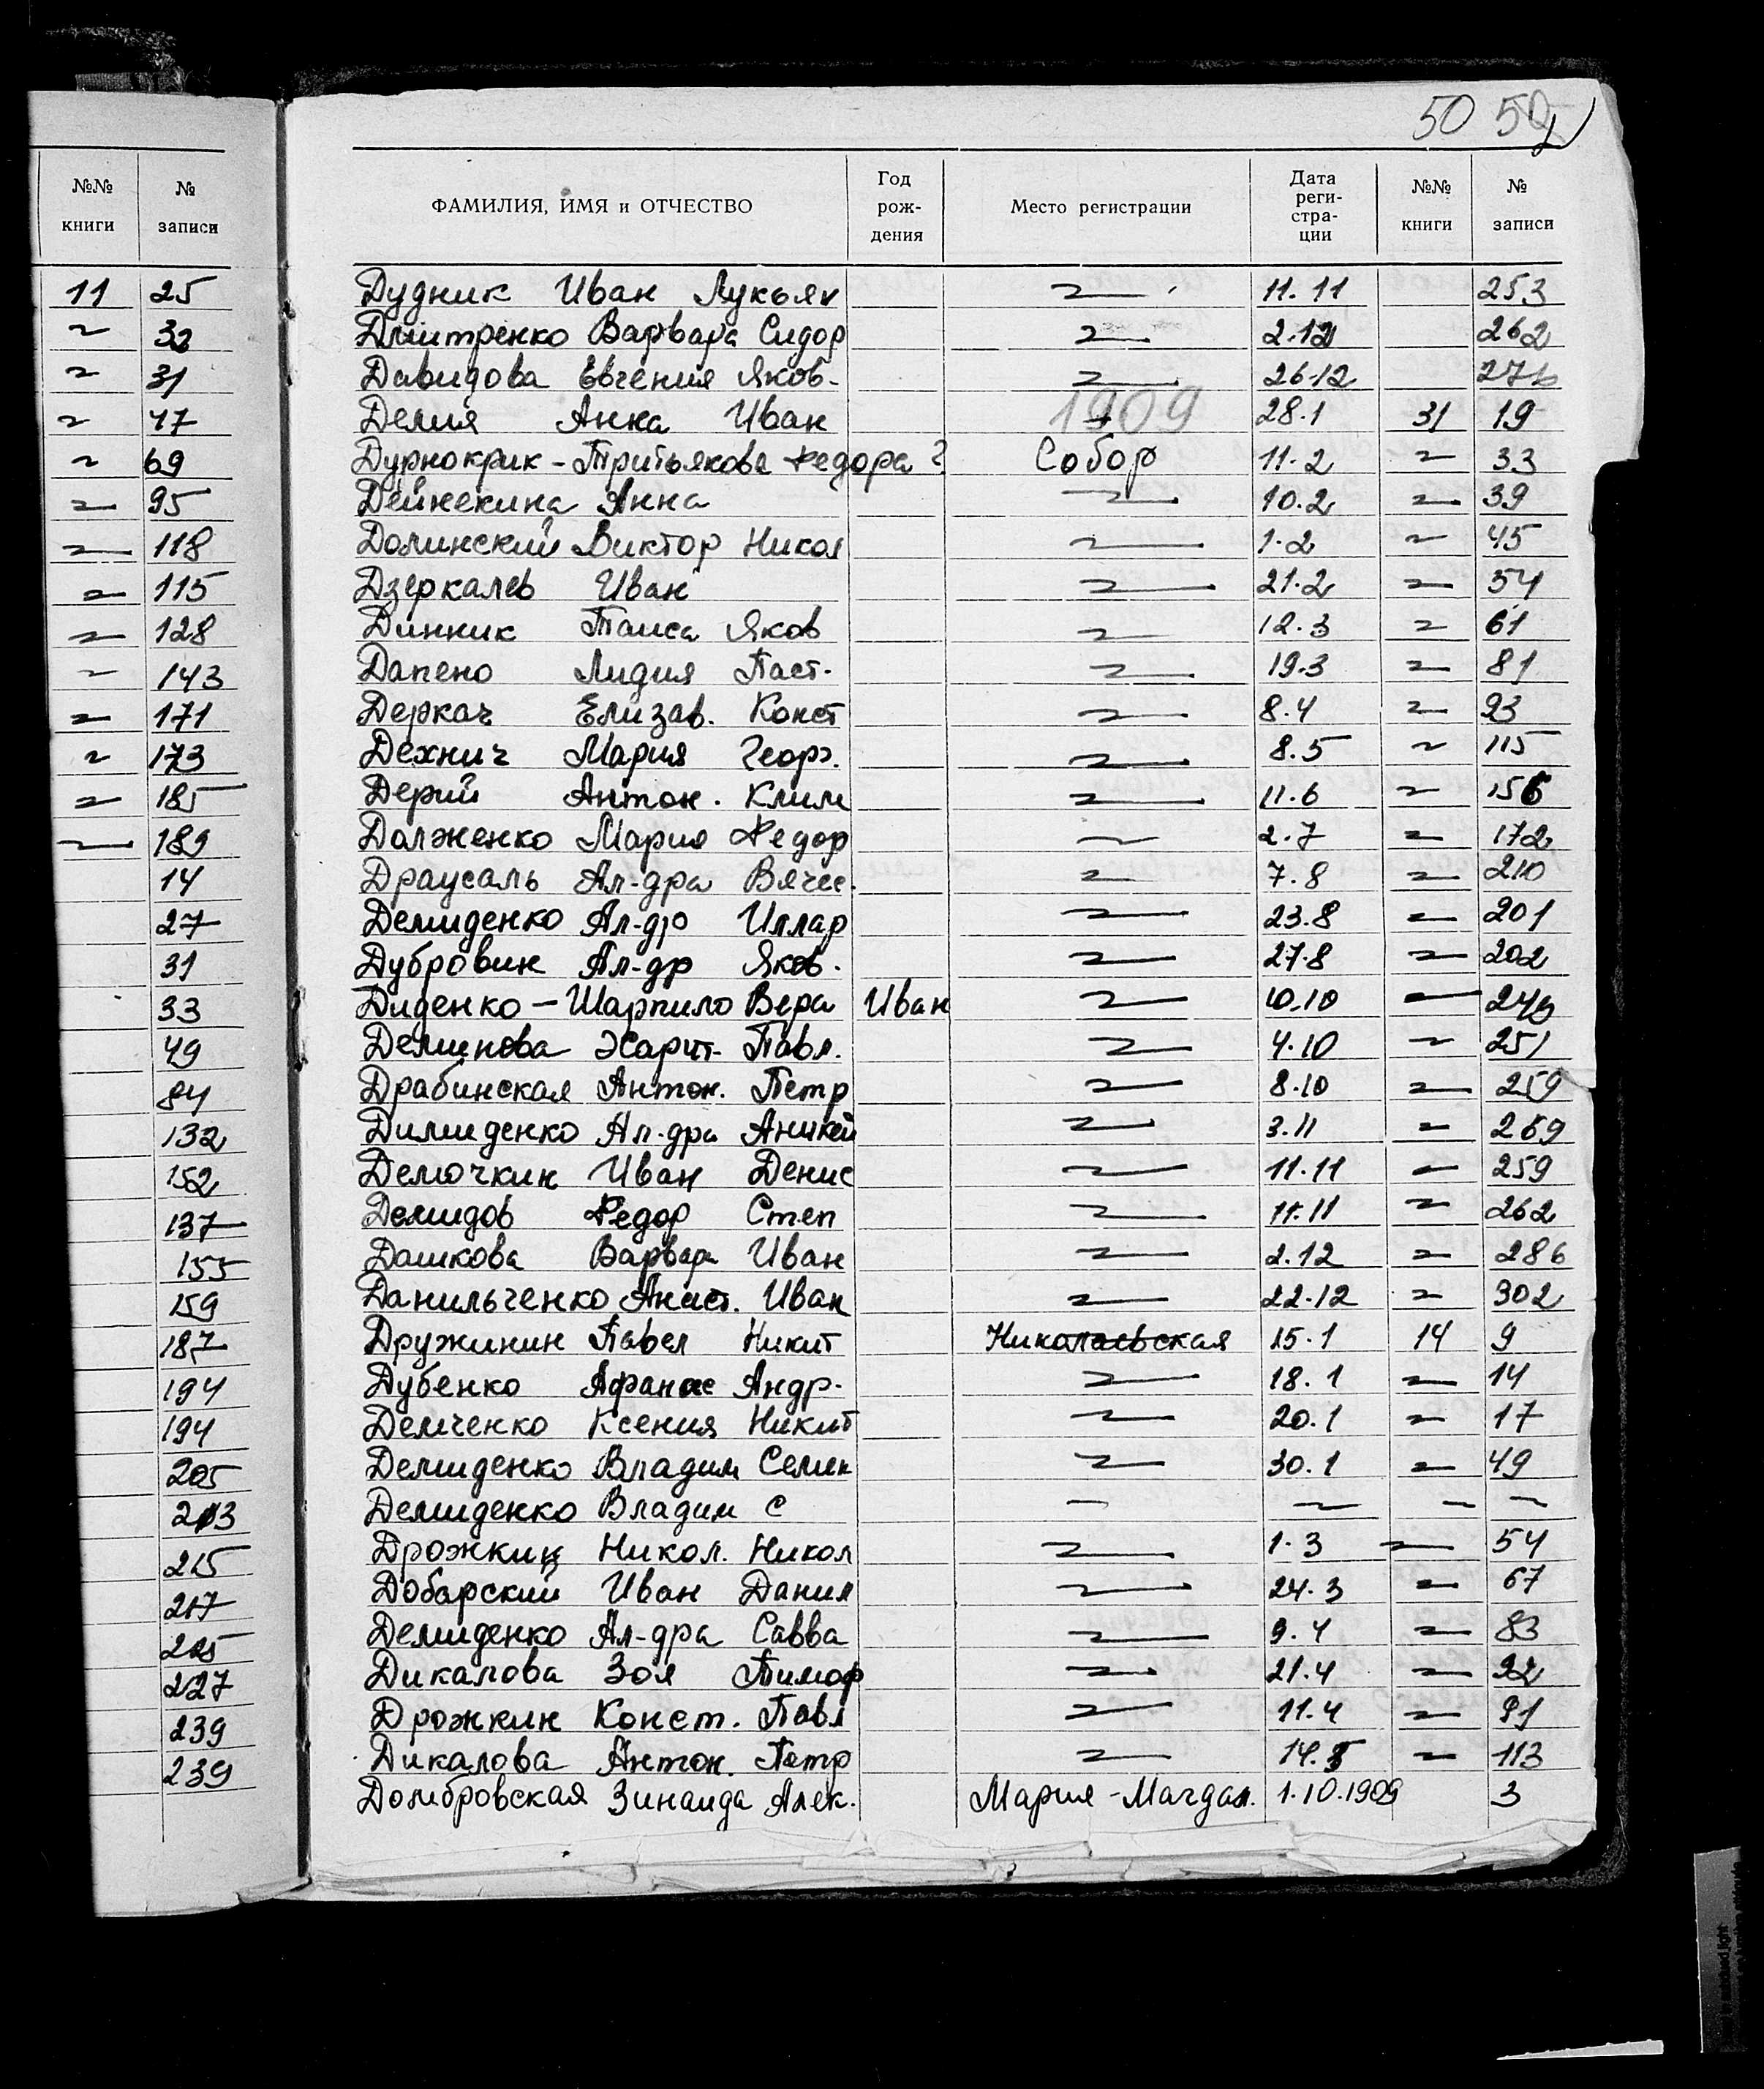 50 52
№№ книги № записи
11 25
~ 32
~ 31
~ 47
~ 69
~ 95
~ 118
~ 115
~ 128
~ 143
~ 171
~ 173
~ 185
~ 189
14
27
31
33
49
84
132
152
137
155
159
187
194
194
205
213
215
217
225
227
239
239
ФАМИЛИЯ, ИМЯ и ОТЧЕСТВО Год рож-дения Место регистрации Дата реги-стра-ции №№ книги № записи
Дудник Иван Лукьян ~ 11.11 253
Дмитренко Варвара Сидор ~ 2.12 262
Давидова Евгения Яков. ~ 26.12 276
1909
Делия Анна Иван 28.1 31 19
Дурнокрик - Тритьякова Федора ? Собор 11.2 ~ 33
Дейнекина Анна ~ 10.2 ~ 39
Долинский Виктор Никол ~ 1.2 ~ 45
Дзеркалев Иван ~ 21.2 ~ 54
Динник Таиса Яков ~ 12.3 ~ 61
Дапено Лидия Паст. ~ 19.3 ~ 81
Деркач Елизав. Конст ~ 8.4 ~ 93
Дехнич Мария Георг. ~ 8.5 ~ 115
Дерий Антон. Клим ~ 11.6 ~ 156
Долженко Мария Федор ~ 2.7 ~ 172
Драусаль Ал-дра Вячес. ~ 7.8 ~ 210
Демиденко Ал-др Иллар ~ 23.8 ~ 201
Дубровин Ал-др Яков. ~ 27.8 ~ 202
Диденко - Шарпило Вера Иван ~ 10.10 ~ 246
Деминова Харит. Павл. ~ 4.10 ~ 251
Драбинская Антон. Петр ~ 8.10 ~ 259
Димиденко Ал-дра Аникей ~ 3.11 ~ 269
Демочкин Иван Денис ~ 11.11 ~ 259
Демидов Федор Степ ~ 11.11 ~ 262
Дашкова Варвара Иван ~ 2.12 ~ 286
Данильченко Анаст. Иван ~ 22.12 ~ 302
Дружинин Павел Никит Николаевская 15.1 14 9
Дубенко Афанас Андр. ~ 18.1 ~ 14
Демченко Ксения Никит ~ 20.1 ~ 17
Демиденко Владим Семен ~ 30.1 ~ 49
Демиденко Владим С ~ ~ ~ ~
Дрожкин Никол. Никол ~ 1.3 ~ 54
Добарский Иван Данил ~ 24.3 ~ 67
Демиденко Ал-дра Савва ~ 9.4 ~ 83
Дикалова Зоя Тимоф ~ 21.4 ~ 92
Дрожкин Конст. Павл ~ 11.4 ~ 91
Дикалова Антон. Петр ~ 14.5 ~ 113
Домбровская Зинаида Алек. Мария-Магдал. 1.10.1909 3